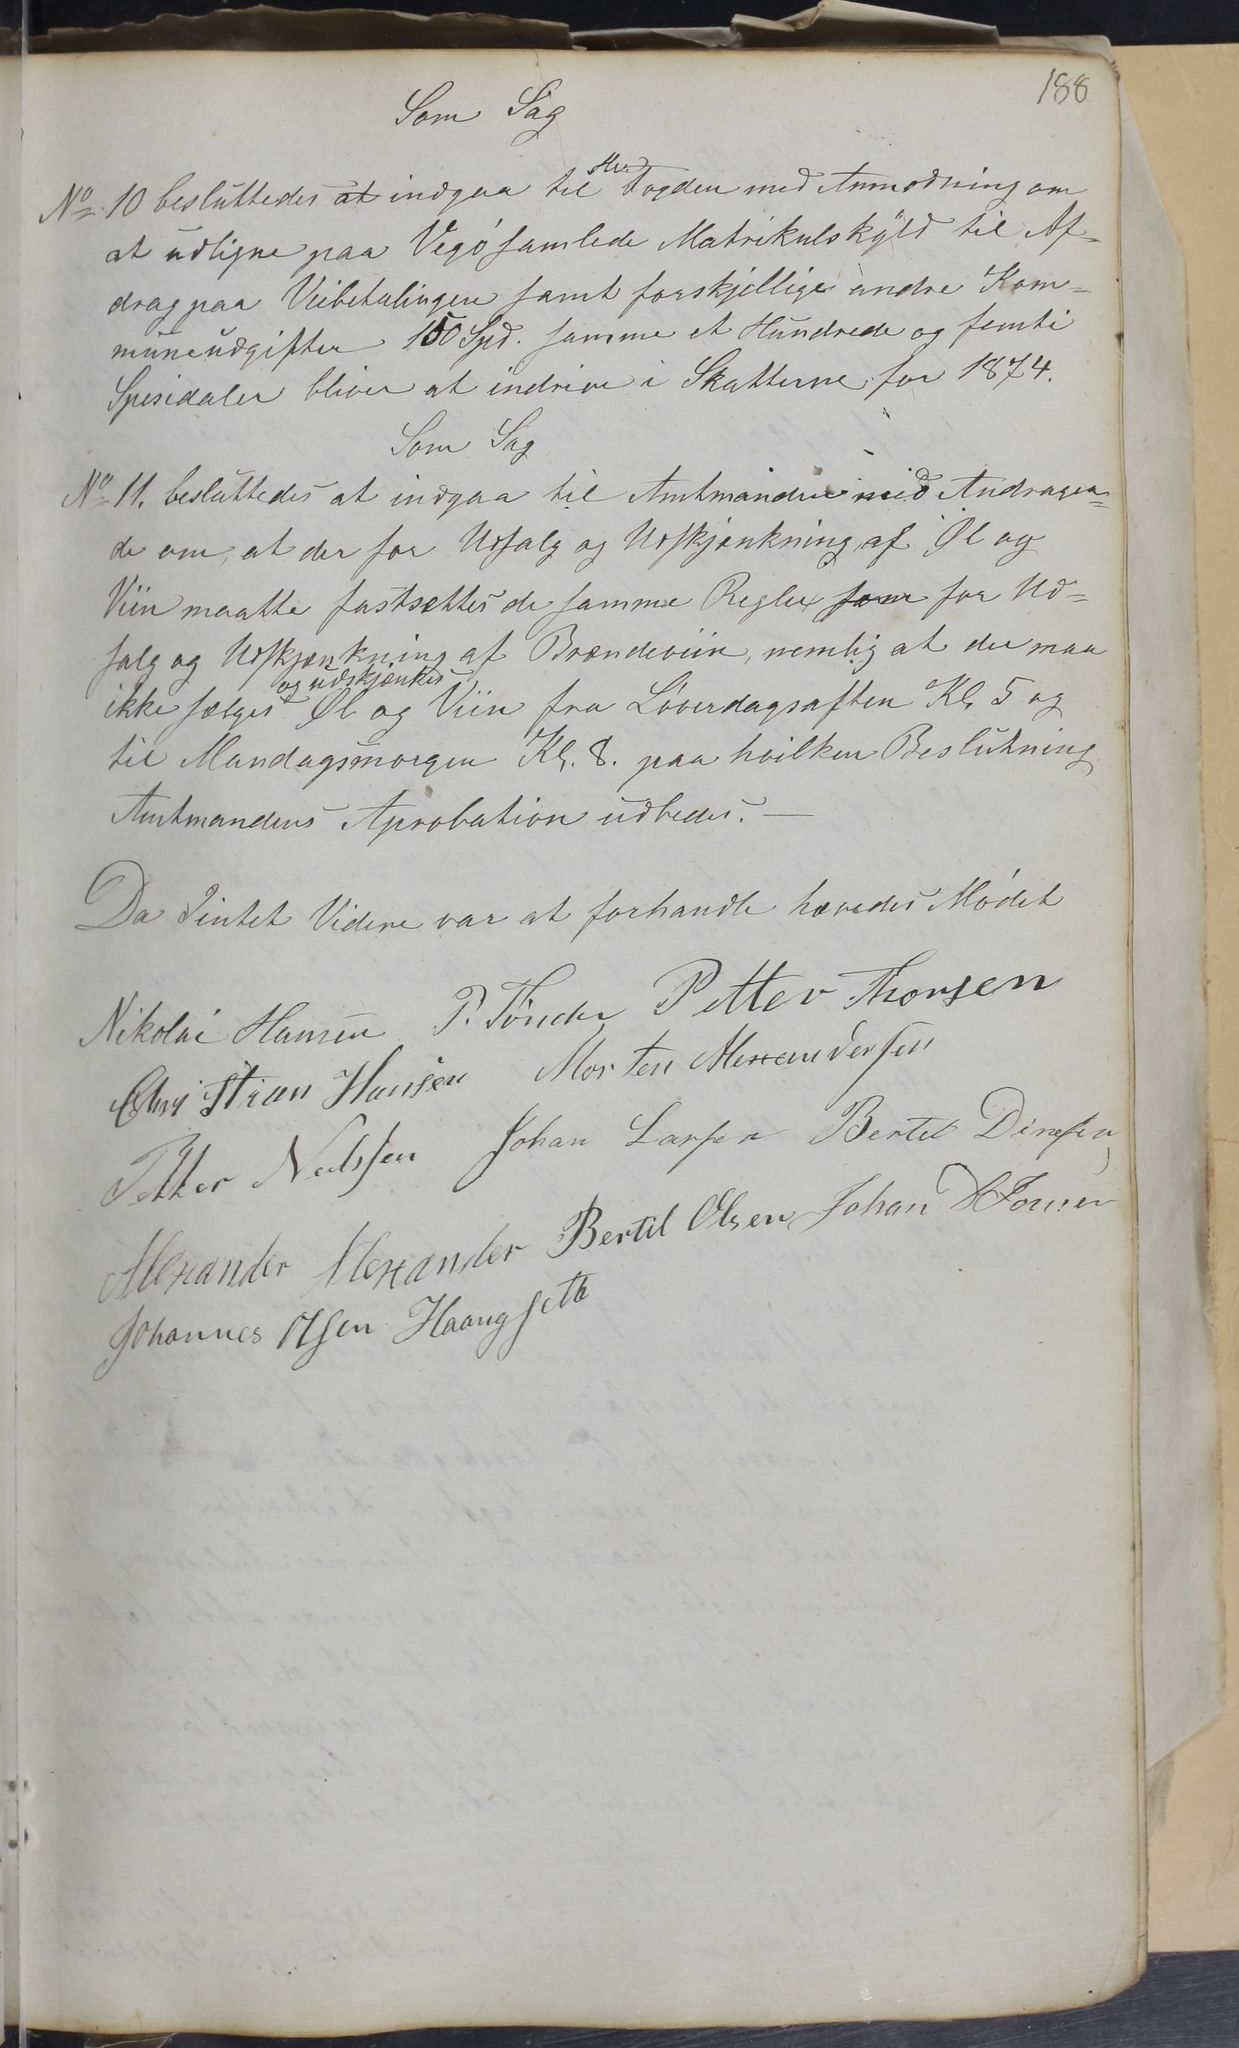 188
Som Sag
No 10 besluttedes at indgaa til Hr Fogden med Anmodning om
at udligne paa Vegø samlede Matrikulskyld til Af-
drag paa Veibetalingen samt forskjellige andre Kom-
muneudgifter 150 Spd. samme et Hundrede og femti
Spesidaler bliver at indrive i Skatterne for 1874.
Som Sag
No 11. besluttedes at indgaa til Amtmanden med Andragen-
de om, at der for Udsalg og Udskjænkning af Øl og
Viin maatte fastsættes de samme Regler som for Ud-
salg og Udskjænkning af Brændeviin, nemlig at der maa
ikke sælges og udskjænkes Øl og Viin fra Løverdagsaften Kl. 5 og
til Mandagsmorgen Kl. 8. paa hvilken Beslutning
Amtmandens Aprobation udbedes. —
Da Intet Videre var at forhandle hævedes Mødet
Nikolai Hansen P. Tønder Petter Thorsen
Christian Hansen Morten Alexandersen
Petter Nelssen Johan Larsen Bertel Dinesen
Alexander Alexander Bertil Olsen Johan
Johannes Olsen Haangseth